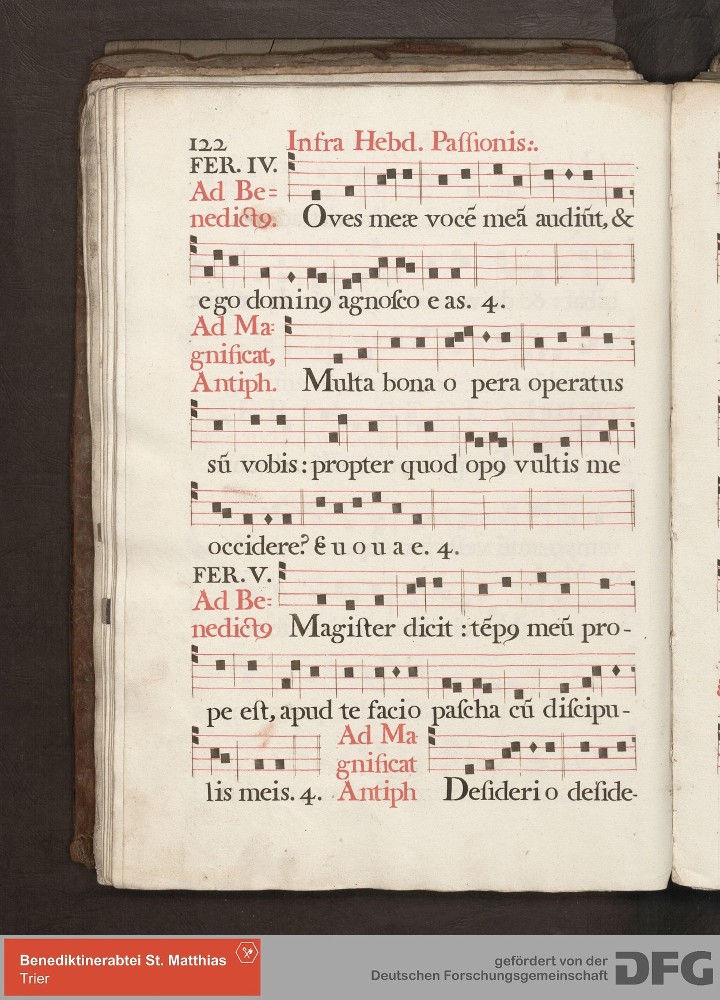 122 Infra Hebd. Paſſionis:.
FER. IV.
Ad Be=
nedictꝯ. Oves meæ vocẽ meã audiũt, &
ego dominꝯ agnoſco eas. 4.
Ad Ma:
gnificat,
Antiph. Multa bona opera operatus
sũ vobis: propter quod opꝯ vultis me
occidere? E u o u a e. 4.
FER. V.
Ad Be:
nedictꝯ Magiſter dicit: tẽpꝯ meũ pro-
pe eſt, apud te facio paſcha cũ diſcipu-
lis meis. 4. Ad Ma
gnificat
Antiph Deſiderio deſide-
Benediktinerabtei St. Matthias
Trier
gefördert von der
Deutschen Forschungsgemeinschaft DFG